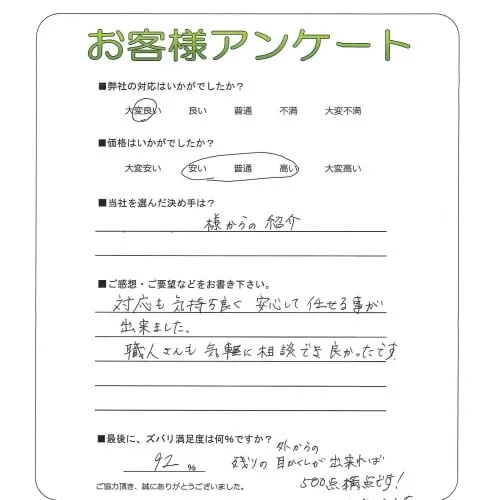 お客様アンケート
■弊社の対応はいかがでしたか？
大変良い 良い 普通 不満 大変不満
■価格はいかがでしたか？
大変安い 安い 普通 高い 大変高い
■当社を選んだ決め手は？
様からの 紹介
■ご感想・ご要望などをお書き下さい。
対応も 気持ち良く 安心して 任せる事が
出来ました。
職人さんも 気軽に相談でき 良かったです
■最後に、ズバリ満足度は何％ですか？
92 %
外からの
残りの 目かくしが 出来れば
500点満点です!
ご協力頂き、誠にありがとうございました。